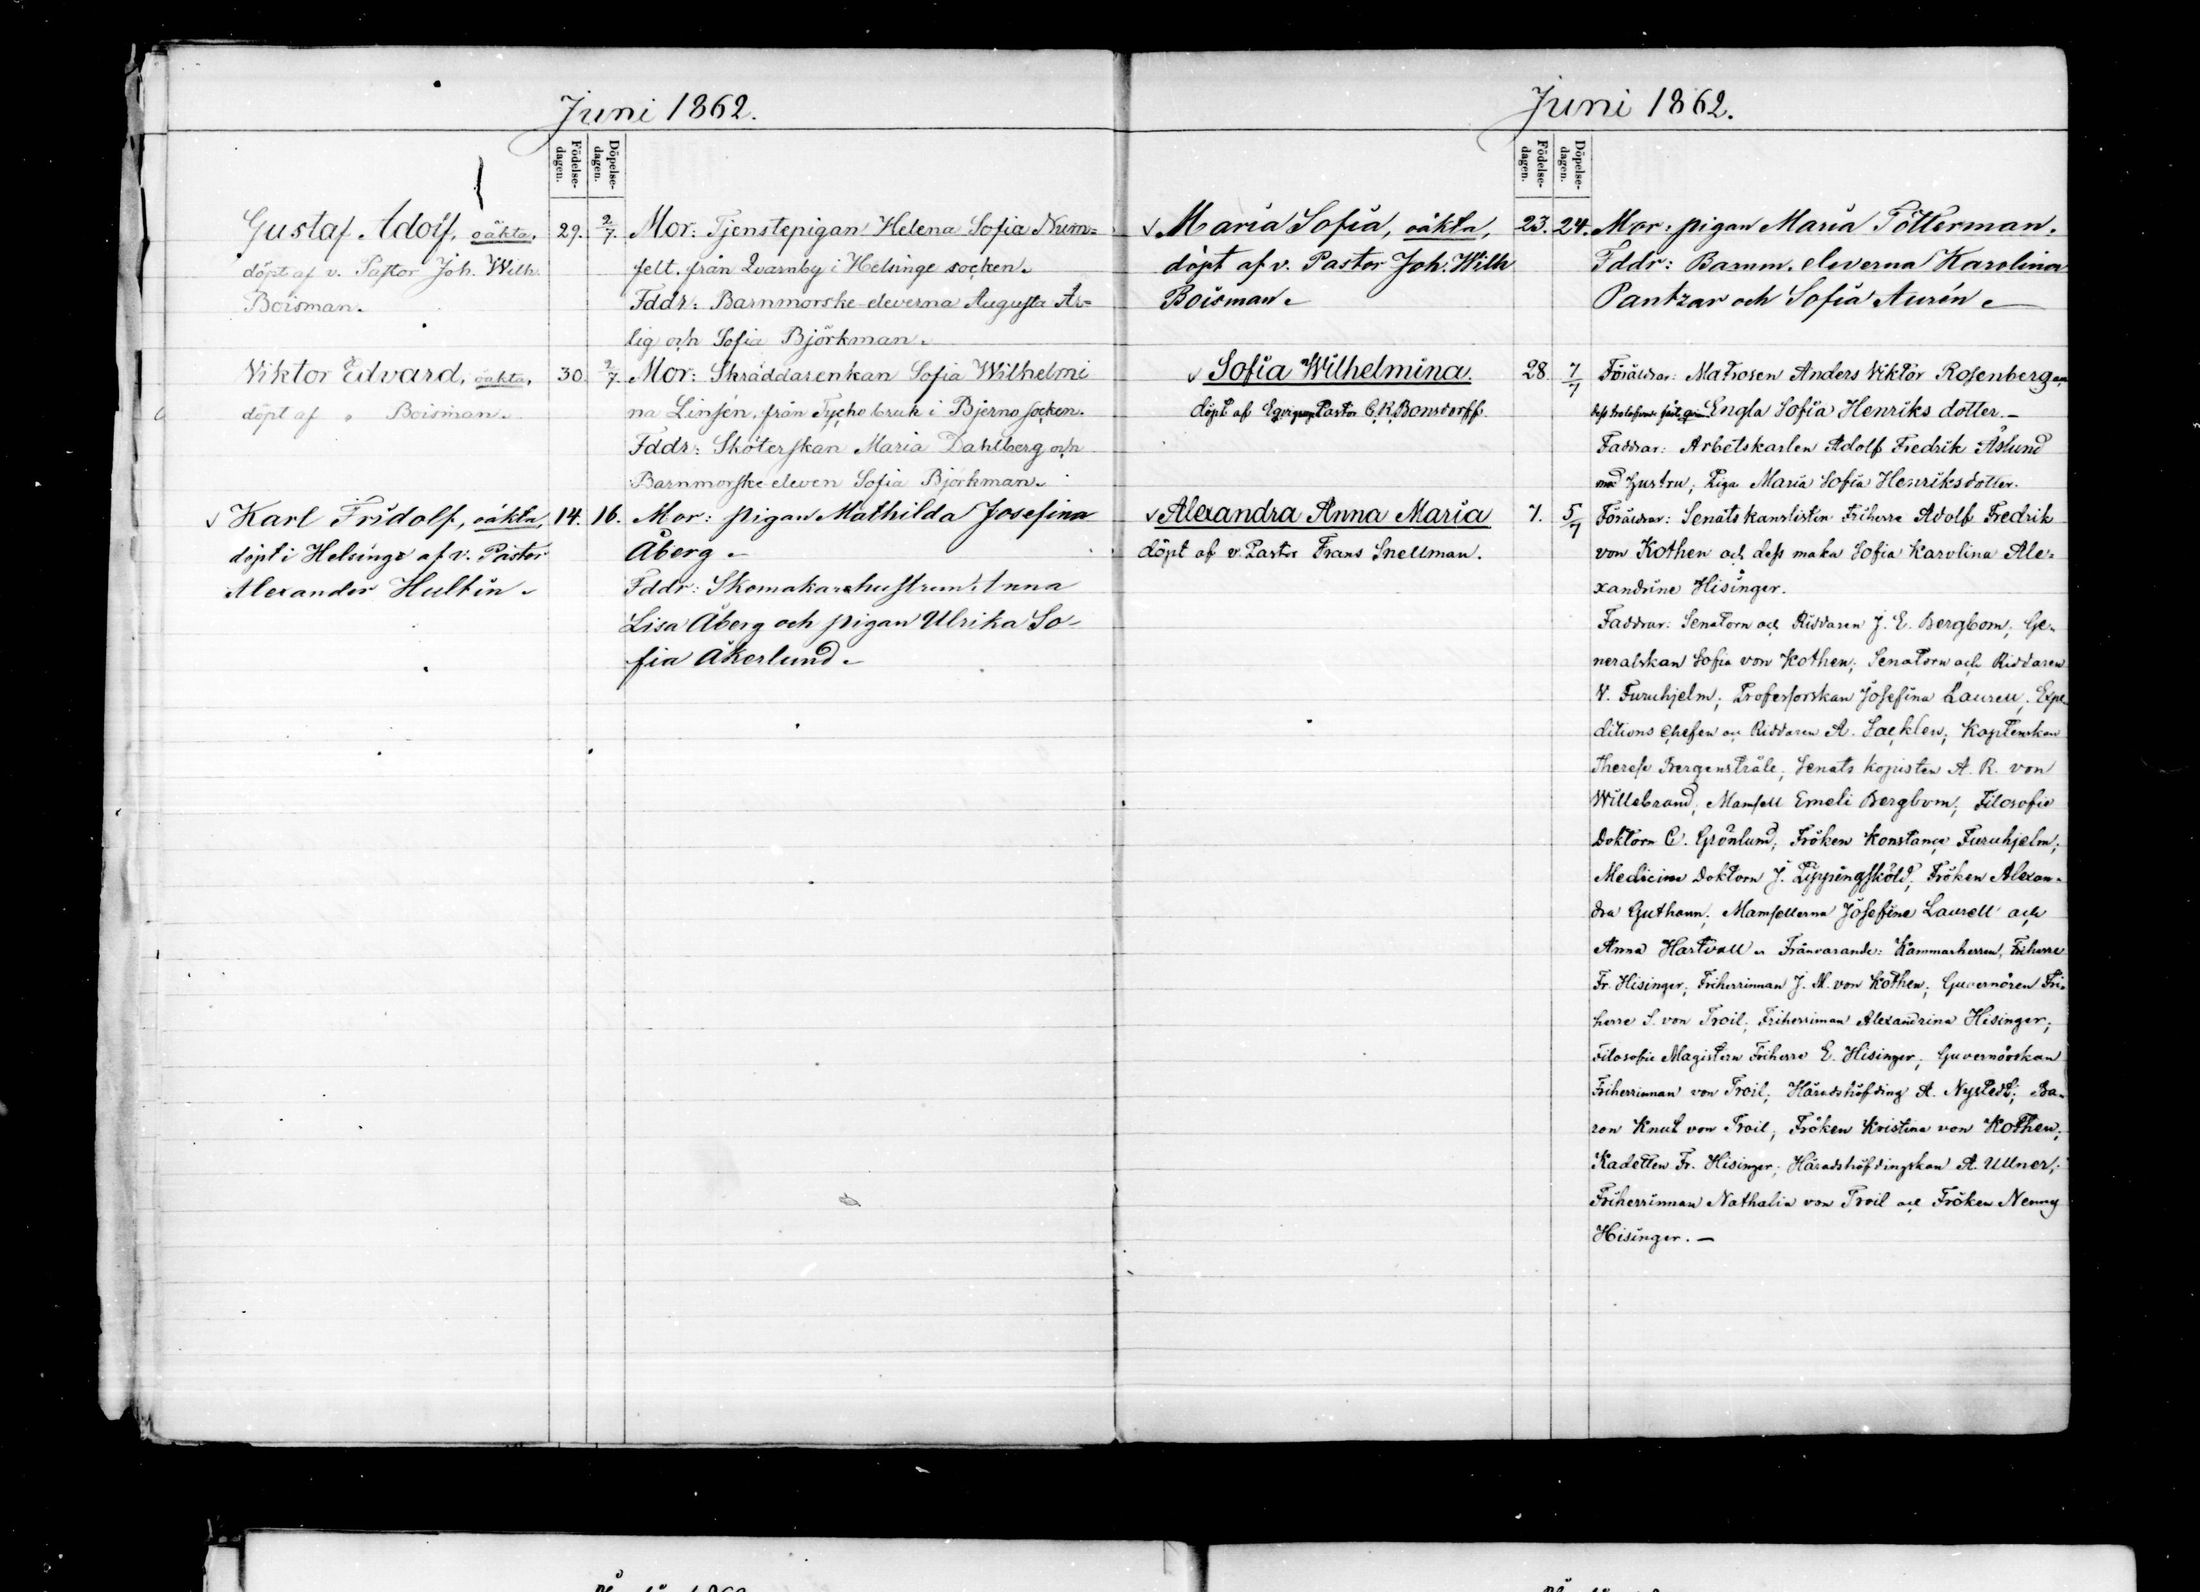 Juni 1862.
Födelse-
dagen.
Döpelse-
dagen.
Gustaf Adolf, oäkta, 29. 2/7. Mor: Tjenstepigan Helena Sofia Num=
döpt af v. Pastor Joh. Wilh. felt. från Qvarnby i Helsinge socken.
Boisman. Fddr: Barnmorske eleverna Augusta Ar=
lig och Sofia Björkman.
Viktor Edvard, oäkta, 30. 2/7. Mor: Skräddarenkan Sofia Wilhelmi
döpt af " Boisman. na Linsén, från Tycho bruk i Bjerno socken.
Fddr: Sköterskan Maria Dahlberg och
Barnmorske eleven Sofia Björkman.
√ Karl Fridolf, oäkta, 14. 16. Mor: pigan Mathilda Josefina
döpt i Helsinge af v. Pastor Åberg.
Alexander Hultin. Fddr: Skomakarehustrun Anna
Lisa Åberg och pigan Ulrika So-
fia Åkerlund.
Juni 1862.
Födelse-
dagen.
Döpelse-
dagen.
√ Maria Sofia, oäkta, 23. 24. Mor: pigan Maria Tötterman.
döpt af v. Pastor Joh. Wilh Fddr: Barnm. eleverna Karolina
Boisman. Pantzar och Sofia Aurén.
√ Sofia Wilhelmina. 28. 7/7 Föräldrar: Matrosen Anders Viktor Rosenberg
döpt af Pastor C. R. Bonsdorff. Engla Sofia Henriks dotter. —
Faddrar: Arbetskarlen Adolf Fredrik Åslund
med hustru, Piga Maria Sofia Henriksdotter.
√ Alexandra Anna Maria 1. 5/7 Föräldrar: Senats kanslisten Friherre Adolf Fredrik
döpt af v. Pastor Frans Snellman. von Kothen och dess maka Sofia Karolina Ale=
xandrine Hisinger.
Faddrar: Senatorn och Riddaren J. E. Bergbom, Ge-
neralskan Sofia von Kothen; Senatorn och Riddaren
V. Furuhjelm; Professorskan Josefina Laurell; Expe-
ditions chefen och Riddaren A. Sacklen; Kaptenskan
Therese Bergenstråle; Senats kopisten A. R. von
Willebrand; Mamsell Emeli Bergbom; Filosofie
Doktorn C. Grönlund; Fröken Konstance Furuhjelm;
Medicine Doktorn J. Pippingsköld; Fröken Alexan-
dra Guthann; Mamsellerna Josefine Laurell och
Anna Hartvall. Frånvarande: Kammarherren, Friherre
Fr. Hisinger; Friherrinnan J. M. von Kothen; Guvernören Fri-
herre S. von Troil; Friherrinnan Alexandrina Hisinger;
Filosofie Magistern Friherre E. Hisinger; Guvernörskan
Friherrinnan von Troil; Häradshöfding A. Nystedt; Ba-
ron Knut von Troil; Fröken Kristina von Kothen;
Kadetten Fr. Hisinger; Häradshöfdingskan A. Ullner;
Friherrinnan Nathalia von Troil och Fröken Nenny
Hisinger. —